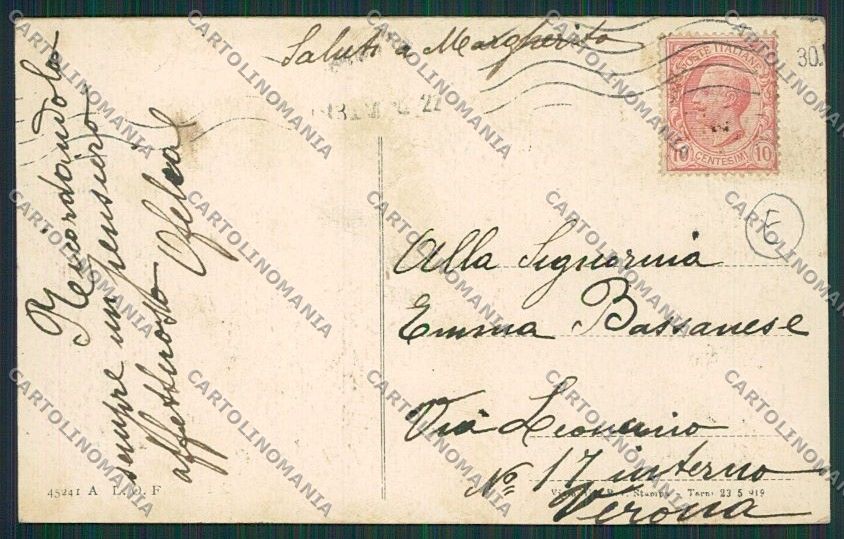 Saluti a Margherita
30.
22
POSTE ITALIANE
10 CENTESIMI 10
E
Ricordandola
sempre un pensiero
affettuoso Ofelia
Alla Signorina
Emma Bassanese
Via Leoncino
No 17 interno
Verona
45241 A L. D. F
R. Stampa Terni 23 5 919
CARTOLINOMANIA